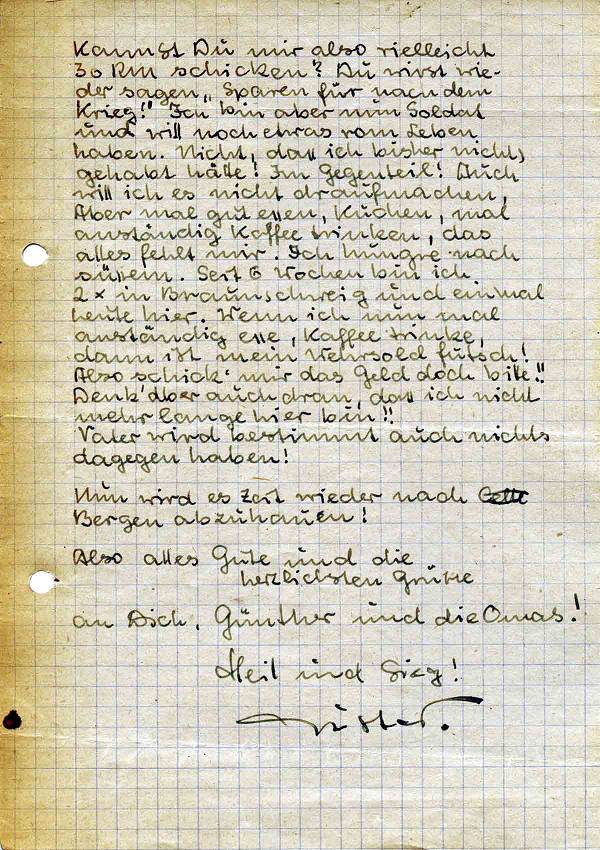 Kannst Du mir also vielleicht
30 RM schicken? Du wirst wie-
der sagen „Sparen für nach dem
Krieg!" Ich bin aber nun Soldat
und will noch etwas vom Leben
haben. Nicht, dass ich bisher nichts
gehabt hätte! Im Gegenteil! Auch
will ich es nicht draufmachen,
Aber mal gut essen, Kuchen, mal
anständig Kaffee trinken, das
alles fehlt mir. Ich hungre nach
süssem. Seit 6 Wochen bin ich
2 x in Braunschweig und einmal
heute hier. Wenn ich nun mal
anständig esse, Kaffee trinke,
dann ist mein Wehrsold futsch!
Also schick' mir das Geld doch bitte!!
Denk' aber auch dran, dass ich nicht
mehr lange hier bin!!
Vater wird bestimmt auch nichts
dagegen haben!
Nun wird es Zeit wieder nach Celle
Bergen abzuhauen!
Also alles Gute und die
herzlichsten Grüsse
an Dich, Günther und die Omas!
Heil und Sieg!